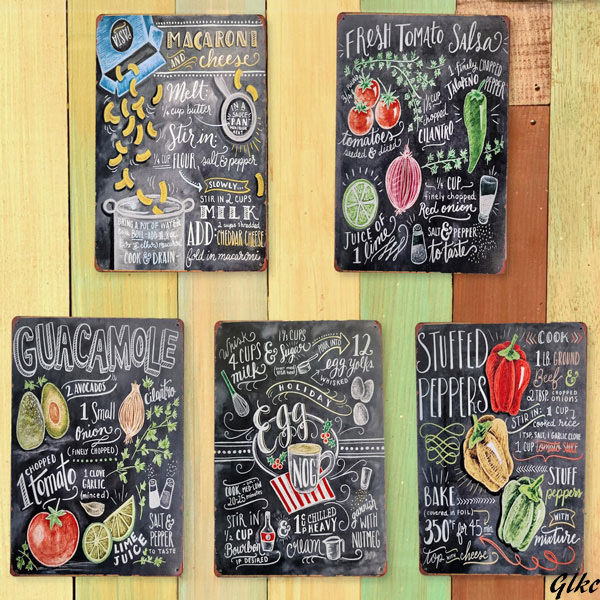 PASTA
MACARONI
AND cheese
Melt:
¼ cup butter
IN A
SAUCE
PAN
Stir in:
¼ CUP FLOUR salt & pepper
SLOWLY...
STIR IN 2 CUPS
MILK
2 cups shredded
ADD CHEDDAR CHEESE
fold in macaroni
BRING A POT OF WATER
COOK & DRAIN
FRESH TOMATO SALSA
1 finely CHOPPED
JALAPEÑO PEPPER
tomatoes
seeded & diced
chopped
CILANTRO
¼ CUP
finely chopped
Red onion
JUICE OF
1 lime
SALT & PEPPER
to taste
GUACAMOLE
2 AVOCADOS
Cilantro
1 Small
onion
(FINELY CHOPPED)
1 CHOPPED
tomato
1 CLOVE
GARLIC
(minced)
SALT &
PEPPER
TO TASTE
LIME
JUICE
Whisk
4 CUPS
milk &
1½ CUPS
Sugar
POUR INTO
12
egg yolks
WHISKED
HOLIDAY
Egg
NOG
COOK MED-LOW
20-25 minutes
STIR IN
½ CUP
Bourbon
IF DESIRED
&
1 C CHILLED
HEAVY
cream
garnish
WITH
NUTMEG
STUFFED
PEPPERS
COOK
1 LB. GROUND
Beef &
2 TBSP. CHOPPED
onions
STIR IN: 1 CUP
cooked rice
1 TSP. SALT, 1 GARLIC CLOVE
1 CUP TOMATO SAUCE
STUFF
peppers
WITH
mixture
BAKE
(covered in foil)
350°F for 45
top with cheese
Glkc